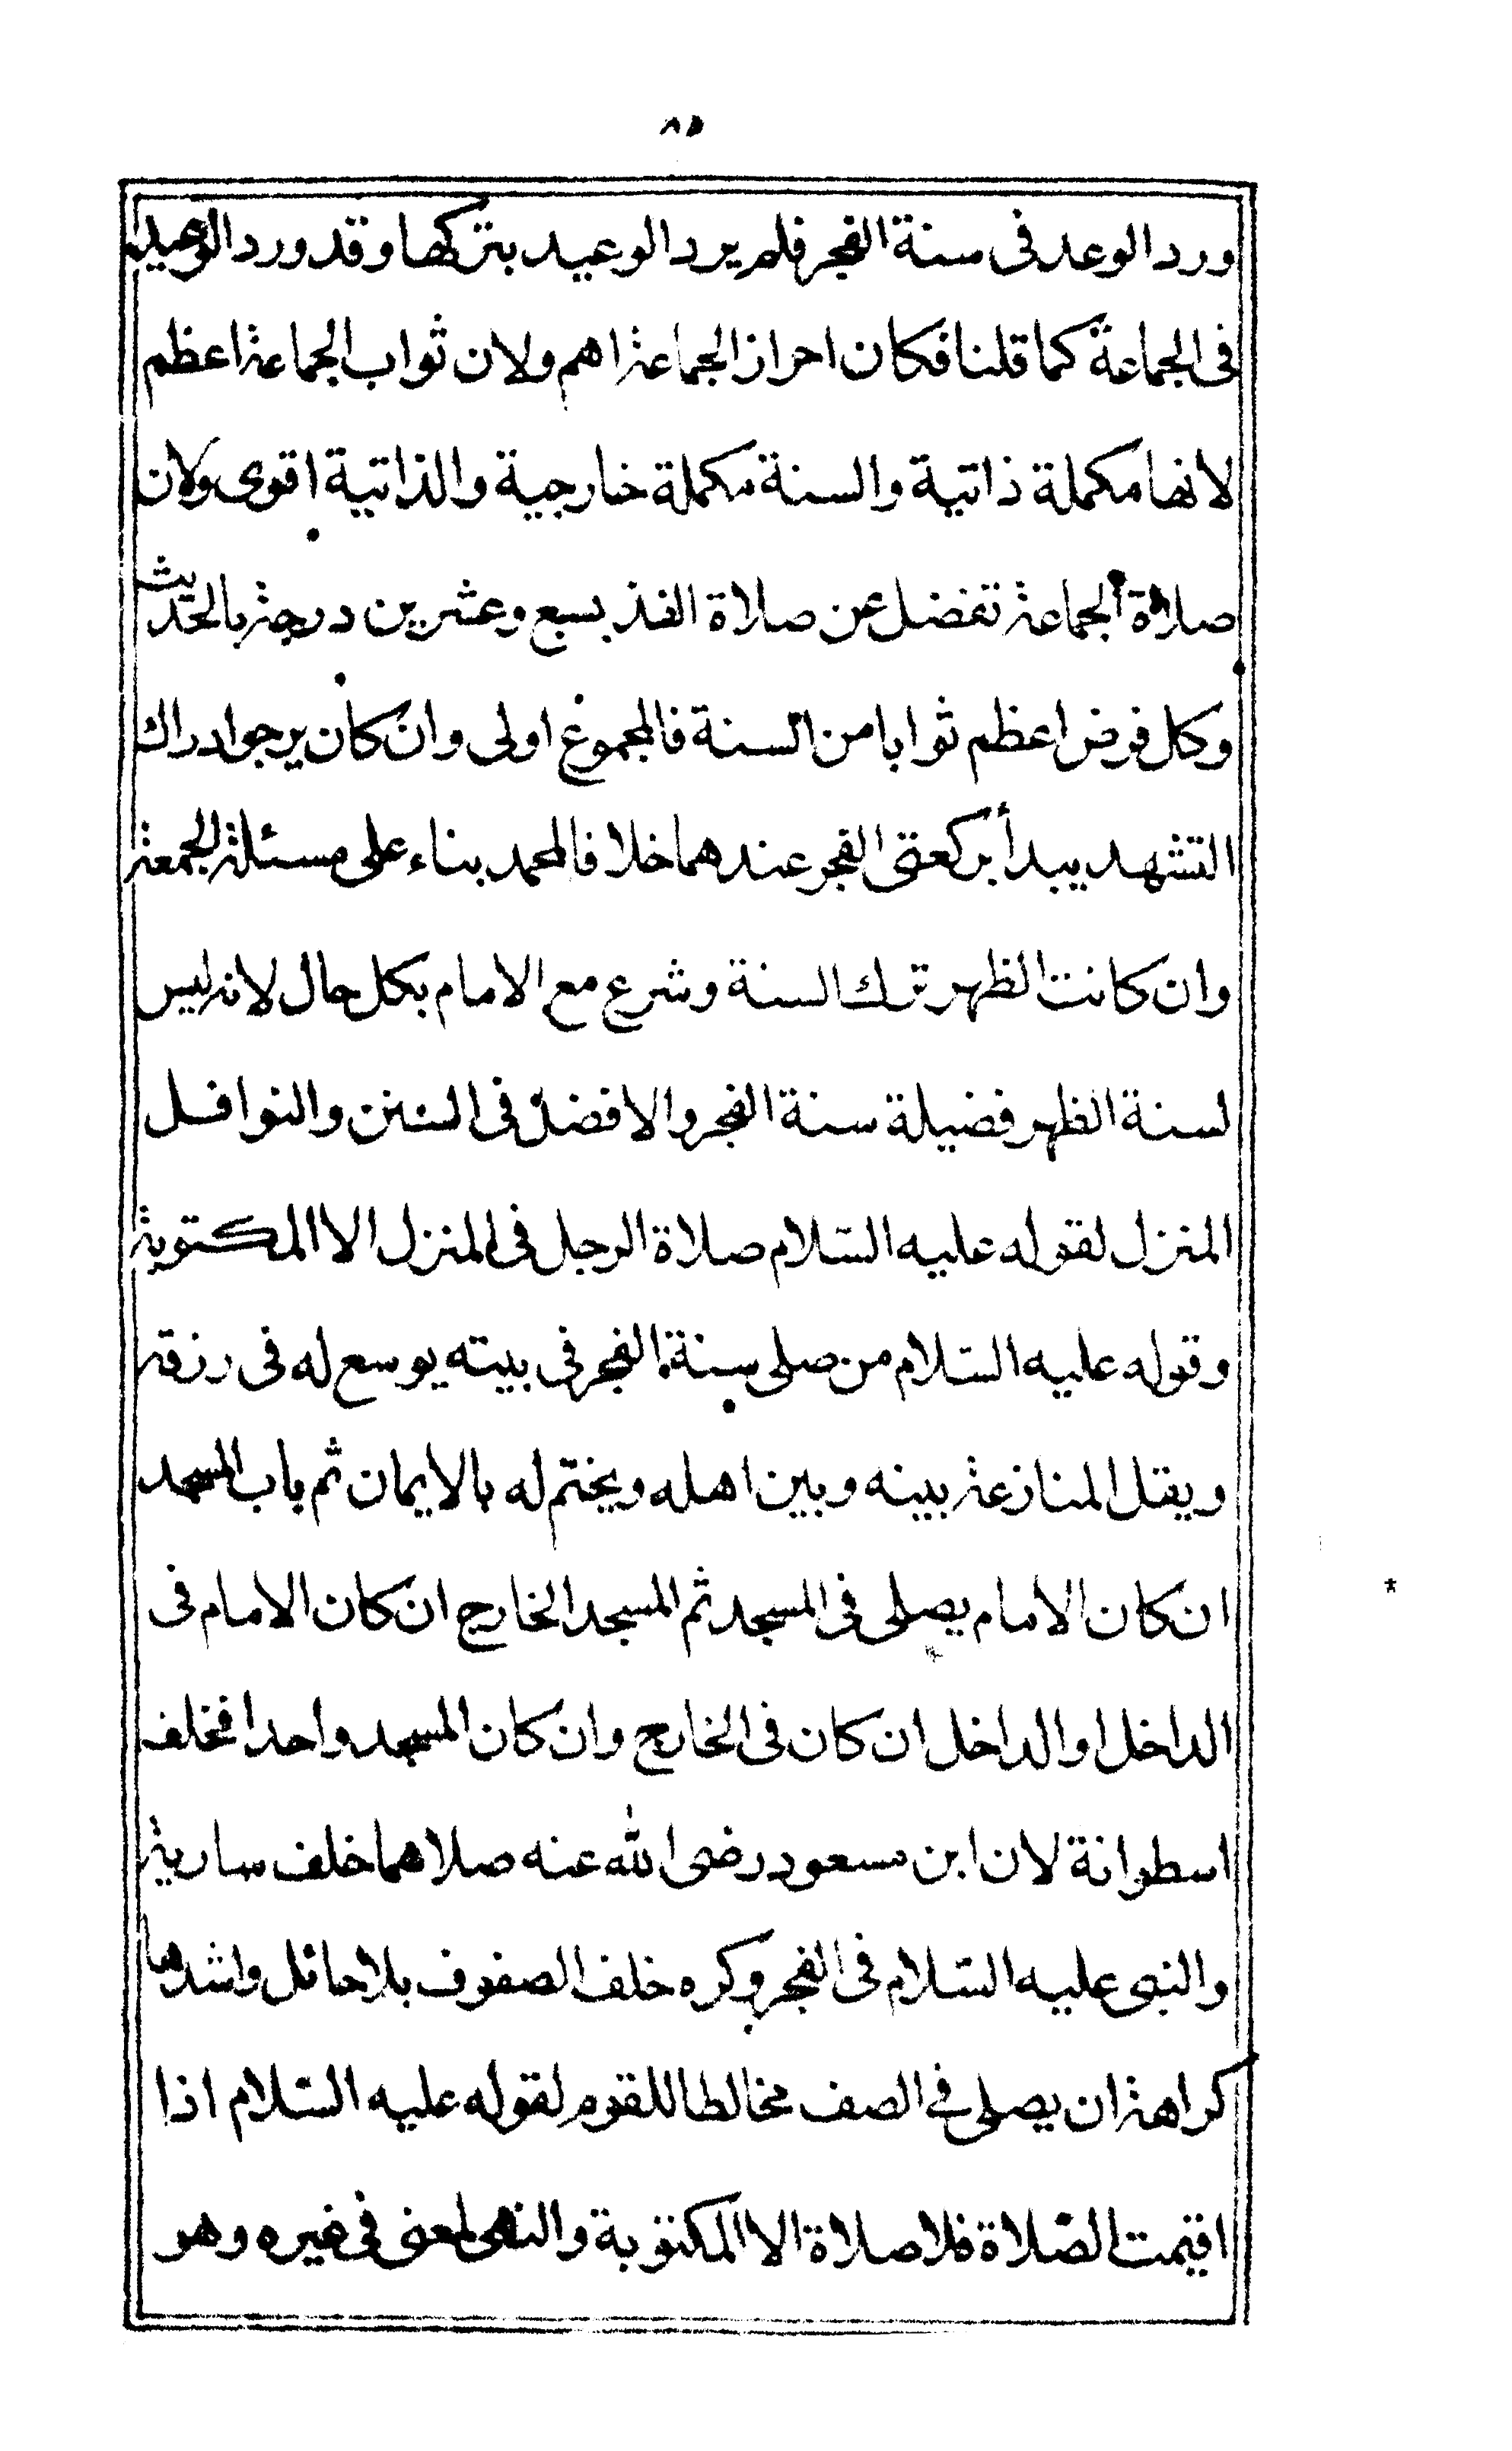 ٨٥
ورد الوعد فى سنة الفجر فلم يرد الوعيد بتركها وقد ورد الوعيد
فى الجماعة كما قلنا فكان احراز الجماعة اهم ولان ثواب الجماعة اعظم
لانها مكملة ذاتية والسنة مكملة خارجية والذاتية اقوى ولان
صلاة الجماعة تفضل عن صلاة الفذ بسبع وعشرين درجة بالحديث
وكل فرض اعظم ثوابا من السنة فالمجموع اولى وان كان يرجو ادراك
التشهد يبدأ بركعتى الفجر عندهما خلافا لمحمد بناء على مسئلة الجمعة
وان كانت الظهر ترك السنة وشرع مع الامام بكل حال لانه ليس
لسنة الظهر فضيلة سنة الفجر والافضل فى السنن والنوافل
المنزل لقوله عليه السّلام صلاة الرجل فى المنزل الا المكتوبة
وقوله عليه السّلام من صلى سنة الفجر فى بيته يوسع له فى رزقه
ويقل المنازعة بينه وبين اهله ويختم له بالايمان ثم باب المسجد
ان كان الامام يصلى فى المسجد ثم المسجد الخارج ان كان الامام فى
الداخل او الداخل ان كان فى الخارج وان كان المسجد واحدا فخلف
اسطوانة لان ابن مسعود رضى الله عنه صلاهما خلف سارية
والنبى عليه السّلام فى الفجر وكره خلف الصفوف بلا حائل واشدها
كراهة ان يصلى فى الصف مخالطا للقوم لقوله عليه السّلام اذا
اقيمت الصّلاة فلا صلاة الا المكتوبة والنهى لمعنى فى غيره وهو